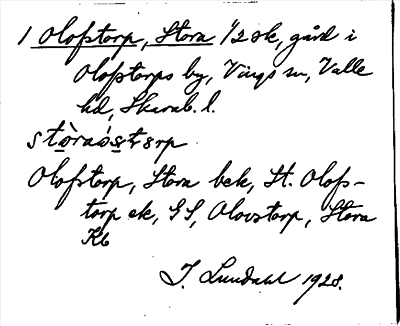 1 Olofstorp, Stora 1/2 sk, gård i
Olofstorps by, Vings sn, Valle
hd, Skarab. l.
Olofstorp, Stora bek, St. Olofs-
torp ek, GS, Olovstorp, Stora
Kb
J. Lundahl 1928.